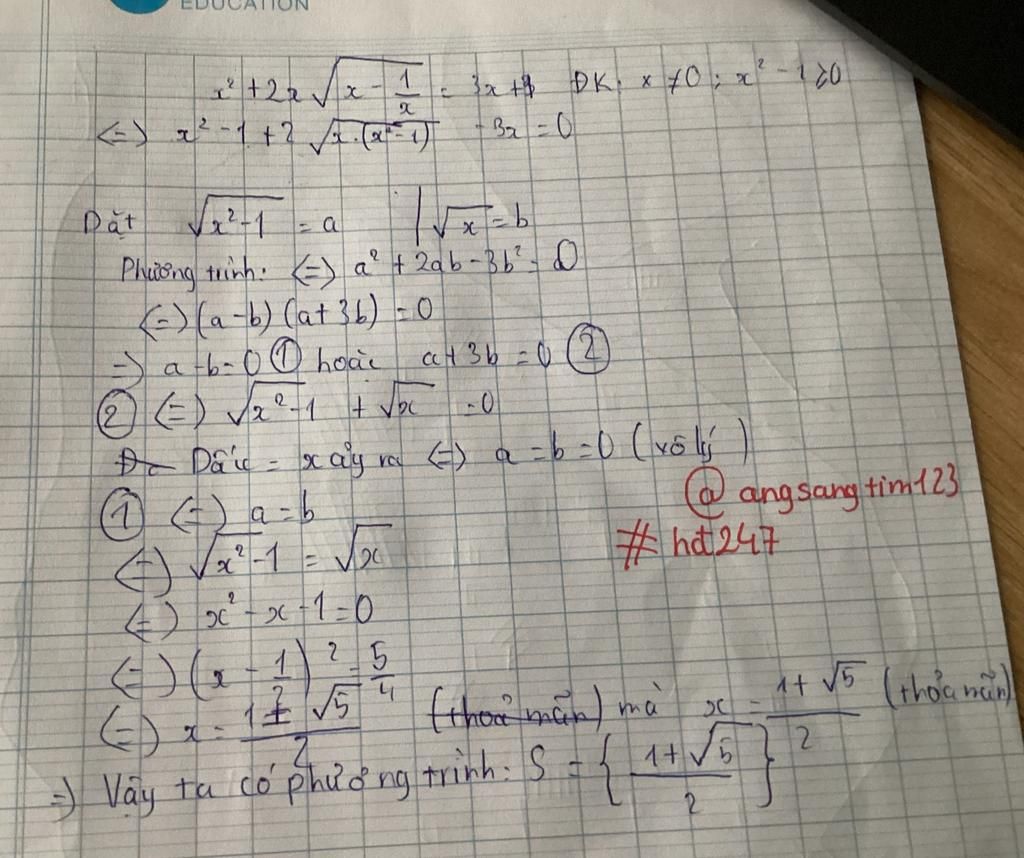 EDUCATION
x² + 2x √(x - 1/x) = 3x + 1 ĐK: x ≠ 0; x² - 1 ≥ 0
<=> x² - 1 + 2 √(x.(x² - 1)) - 3x = 0
Đặt √(x² - 1) = a | √x = b
Phương trình: <=> a² + 2ab - 3b² = 0
<=> (a - b) (a + 3b) = 0
=> a - b = 0 ① hoặc a + 3b = 0 ②
② <=> √(x² - 1) + √x = 0
Dấu = xảy ra <=> a = b = 0 (vô lý)
@angsangtim123
① <=> a = b
#hd247
<=> √(x² - 1) = √x
<=> x² - x - 1 = 0
<=> (x - 1/2)² = 5/4
<=> x = (1 ± √5)/2 (thoả mãn) mà x = (1 + √5)/2 (thỏa mãn)
=> Vậy ta có phương trình: S = {(1 + √5)/2}